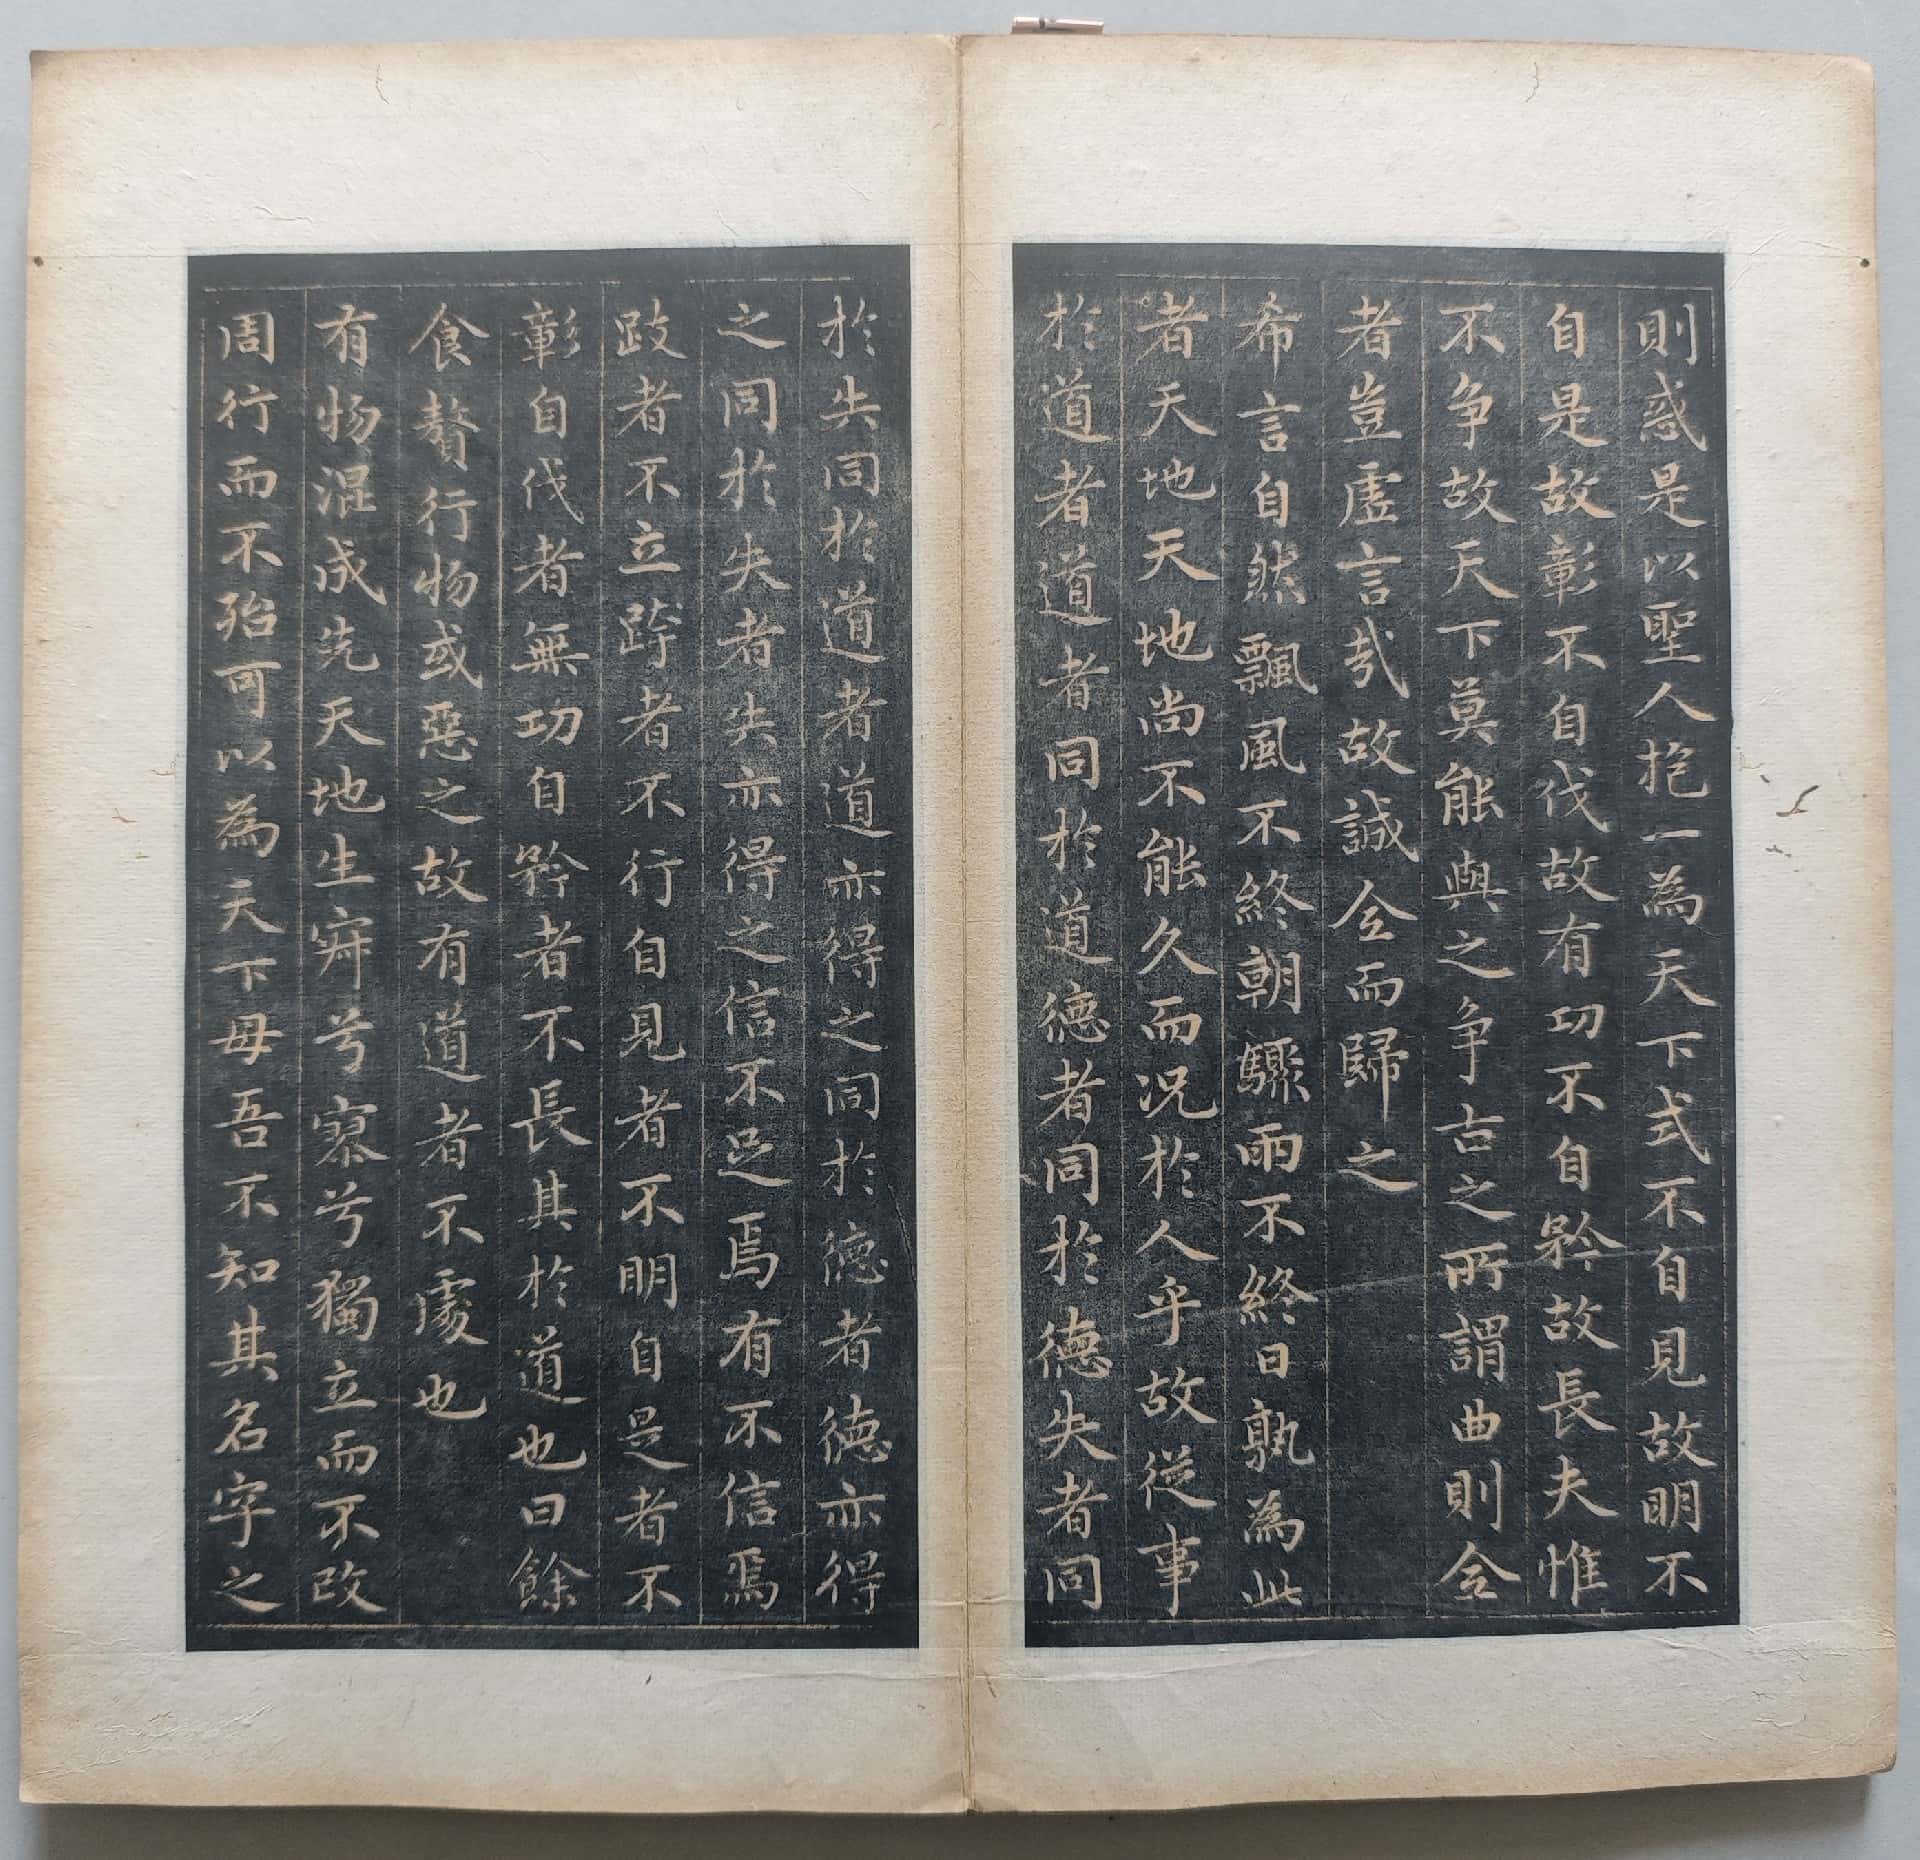 則惑是以聖人抱一為天下式不自見故明不
自是故彰不自伐故有功不自矜故長夫惟
不争故天下莫能與之争古之所謂曲則全
者豈虛言哉故誠全而歸之
希言自然飄風不終朝驟雨不終日孰為此
者天地天地尚不能久而況於人乎故從事
於道者道者同於道德者同於德失者同
於失同於道者道亦得之同於德者德亦得
之同於失者失亦得之信不足焉有不信焉
跂者不立跨者不行自見者不明自是者不
彰自伐者無功自矜者不長其於道也曰餘
食贅行物或惡之故有道者不處也
有物混成先天地生寂兮寥兮獨立而不改
周行而不殆可以為天下母吾不知其名字之